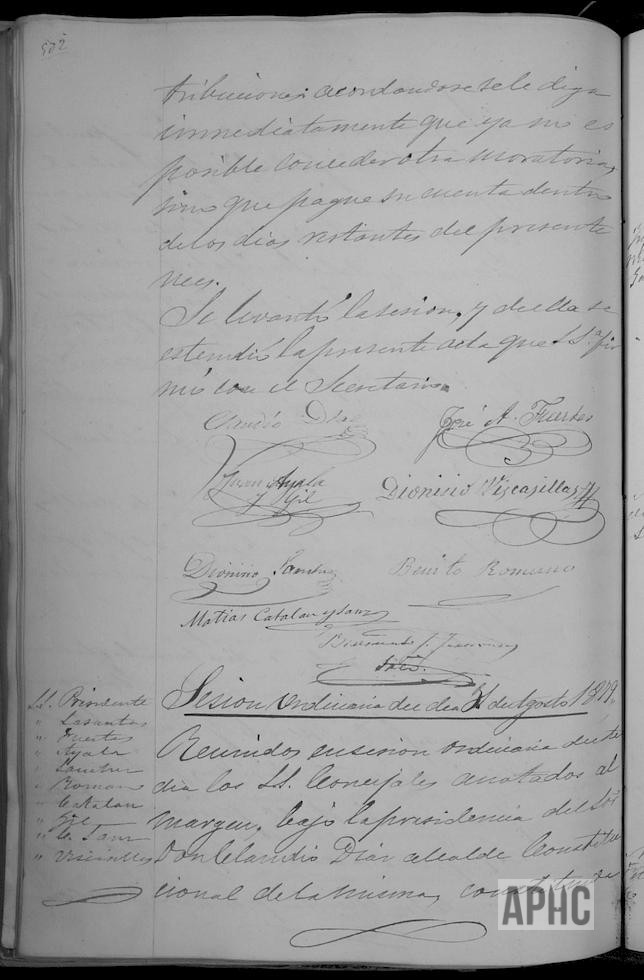 tribuciones acordandose se le diga
inmediatamente que ya no es
posible conceder otra moratoria,
sino que pague su cuenta dentro
de los dias restantes del presente
mes.
Se levantó la sesion, y de ella se
estendió la presente acta que S.S.ª fir
mó con el Secretario.
Claudio Diaz
José A. Fuertes
Juan Ayala
y Gil
Dionisio Viscasillas
Dionisio Sanchez
Benito Romano
Matias Catalan y Sanz
Srio.
Sesion Ordinaria del dia de Agosto 1879.
SS. Presidente
" Lasantas
" Fuertes
" Ayala
" Sanchez
" Romano
" Catalan
" Gil
" Sanz
" Viscasillas
Reunidos en sesion ordinaria de este
dia los SS. Concejales anotados al
margen, bajo la presidencia del Sor
Don Claudio Diaz alcalde Constitu
cional de la misma, constituida
APHC